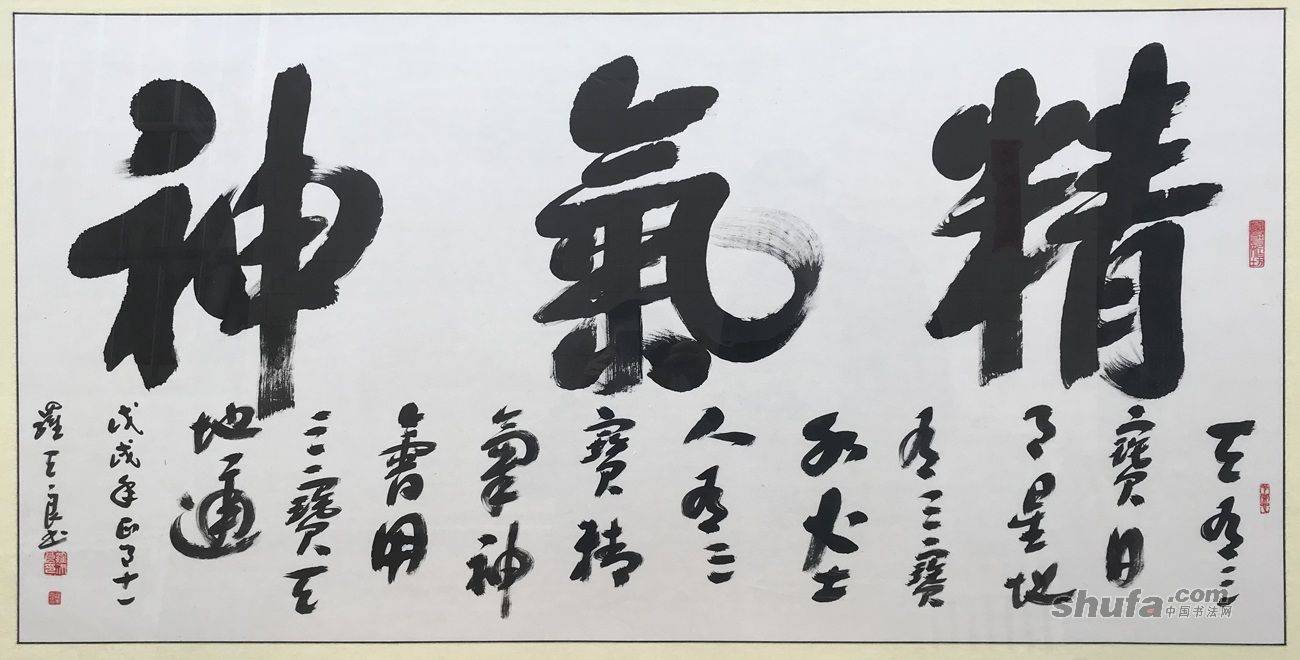 精氣神
天有三
寶日
月星地
有三寶
水火土
人有三
寶精
氣神
會用
三寶天
地通
戊戌年正月十一
羅天良书
shufa.com
中国书法网